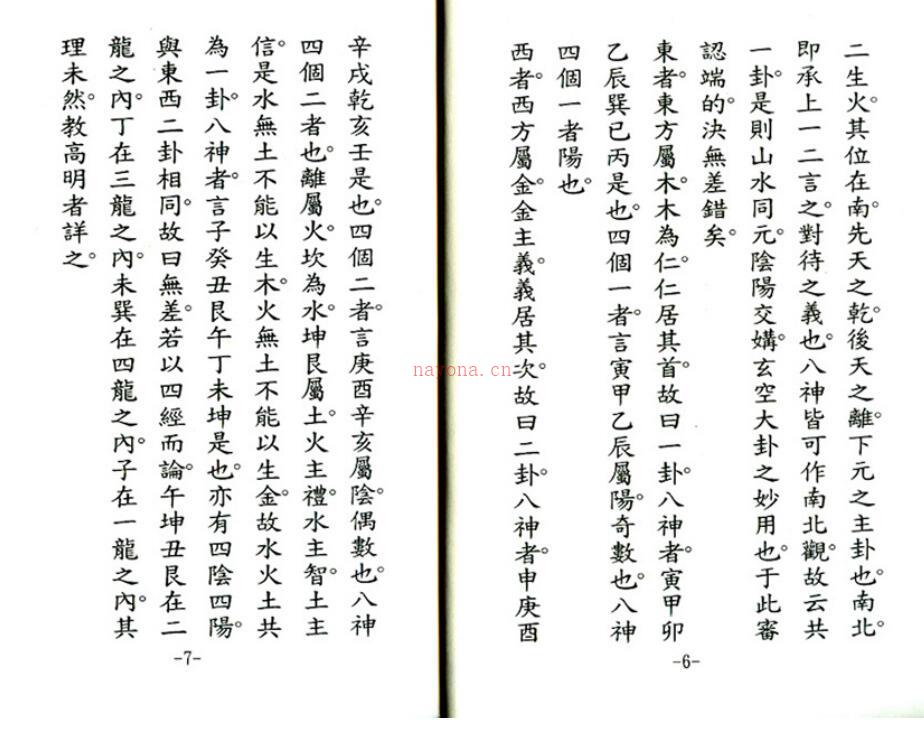 二生火。其位在南。先天之乾。後天之離。下元之主卦也。南北。
即承上一二言之。對待之義也。八神皆可作南北觀。故云共
一卦。是則山水同元。陰陽交媾。玄空大卦之妙用也。于此審
認端的。決無差錯矣。
東者。東方屬木。木為仁。仁居其首。故曰一卦。八神者。寅甲卯
乙辰巽巳丙是也。四個一者。言寅甲乙辰屬陽。奇數也。八神
四個一者陽也。
西者。西方屬金。金主義。義居其次。故曰二卦。八神者。申庚酉
-6-
辛戌乾亥壬是也。四個二者。言庚酉辛亥屬陰。偶數也。八神
四個二者也。離屬火。坎為水。坤艮屬土。火主禮。水主智。土主
信。是水無土不能以生木。火無土不能以生金。故水火土共
為一卦。八神者。言子癸丑艮午丁未坤是也。亦有四陰四陽。
與東西二卦相同。故曰無差。若以四經而論。午坤丑艮在二
龍之內。丁在三龍之內。未巽在四龍之內。子在一龍之內。其
理未然。教高明者詳之。
-7-
nayona.cn